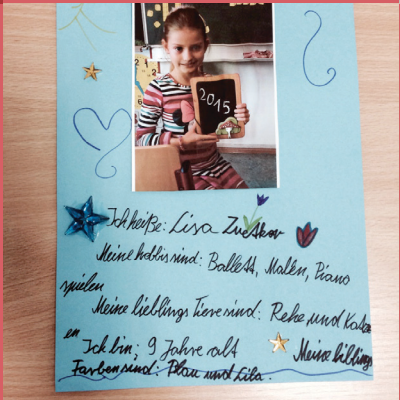 2015
Ich heiße: Lisa Zvetkov
Meine hobbis sind: Ballett, Malen, Piano
spielen
Meine lieblings Tiere sind: Rehe und Katz
en
Ich bin; 9 Jahre alt
Meine liblings
Farben sind: Blau und Lila.